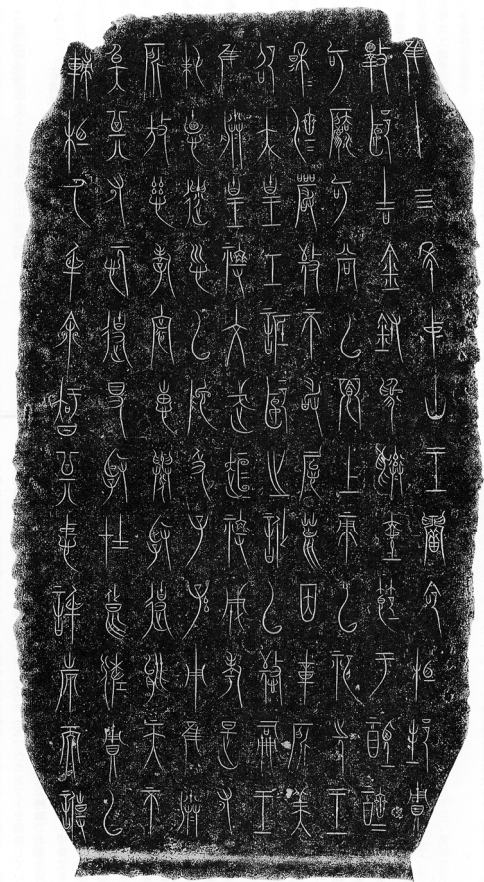 隹十亖年中山王厝命相邦賙
斁郾吉金鑄爲彝壺節于禋齍
可法可尚以饗上帝以祀先王
穆穆濟濟嚴敬不敢怠荒因載所美
卲大皇工詆郾之訛以憼嗣王
隹朕皇祖文武桓祖成考是又
純德遺訓以阤及子孫用隹朕
所放慈孝寰惠舉賢使能天不
斁其又愿使得賢在良佐賙以
輔相氒身余知其忠信也而專